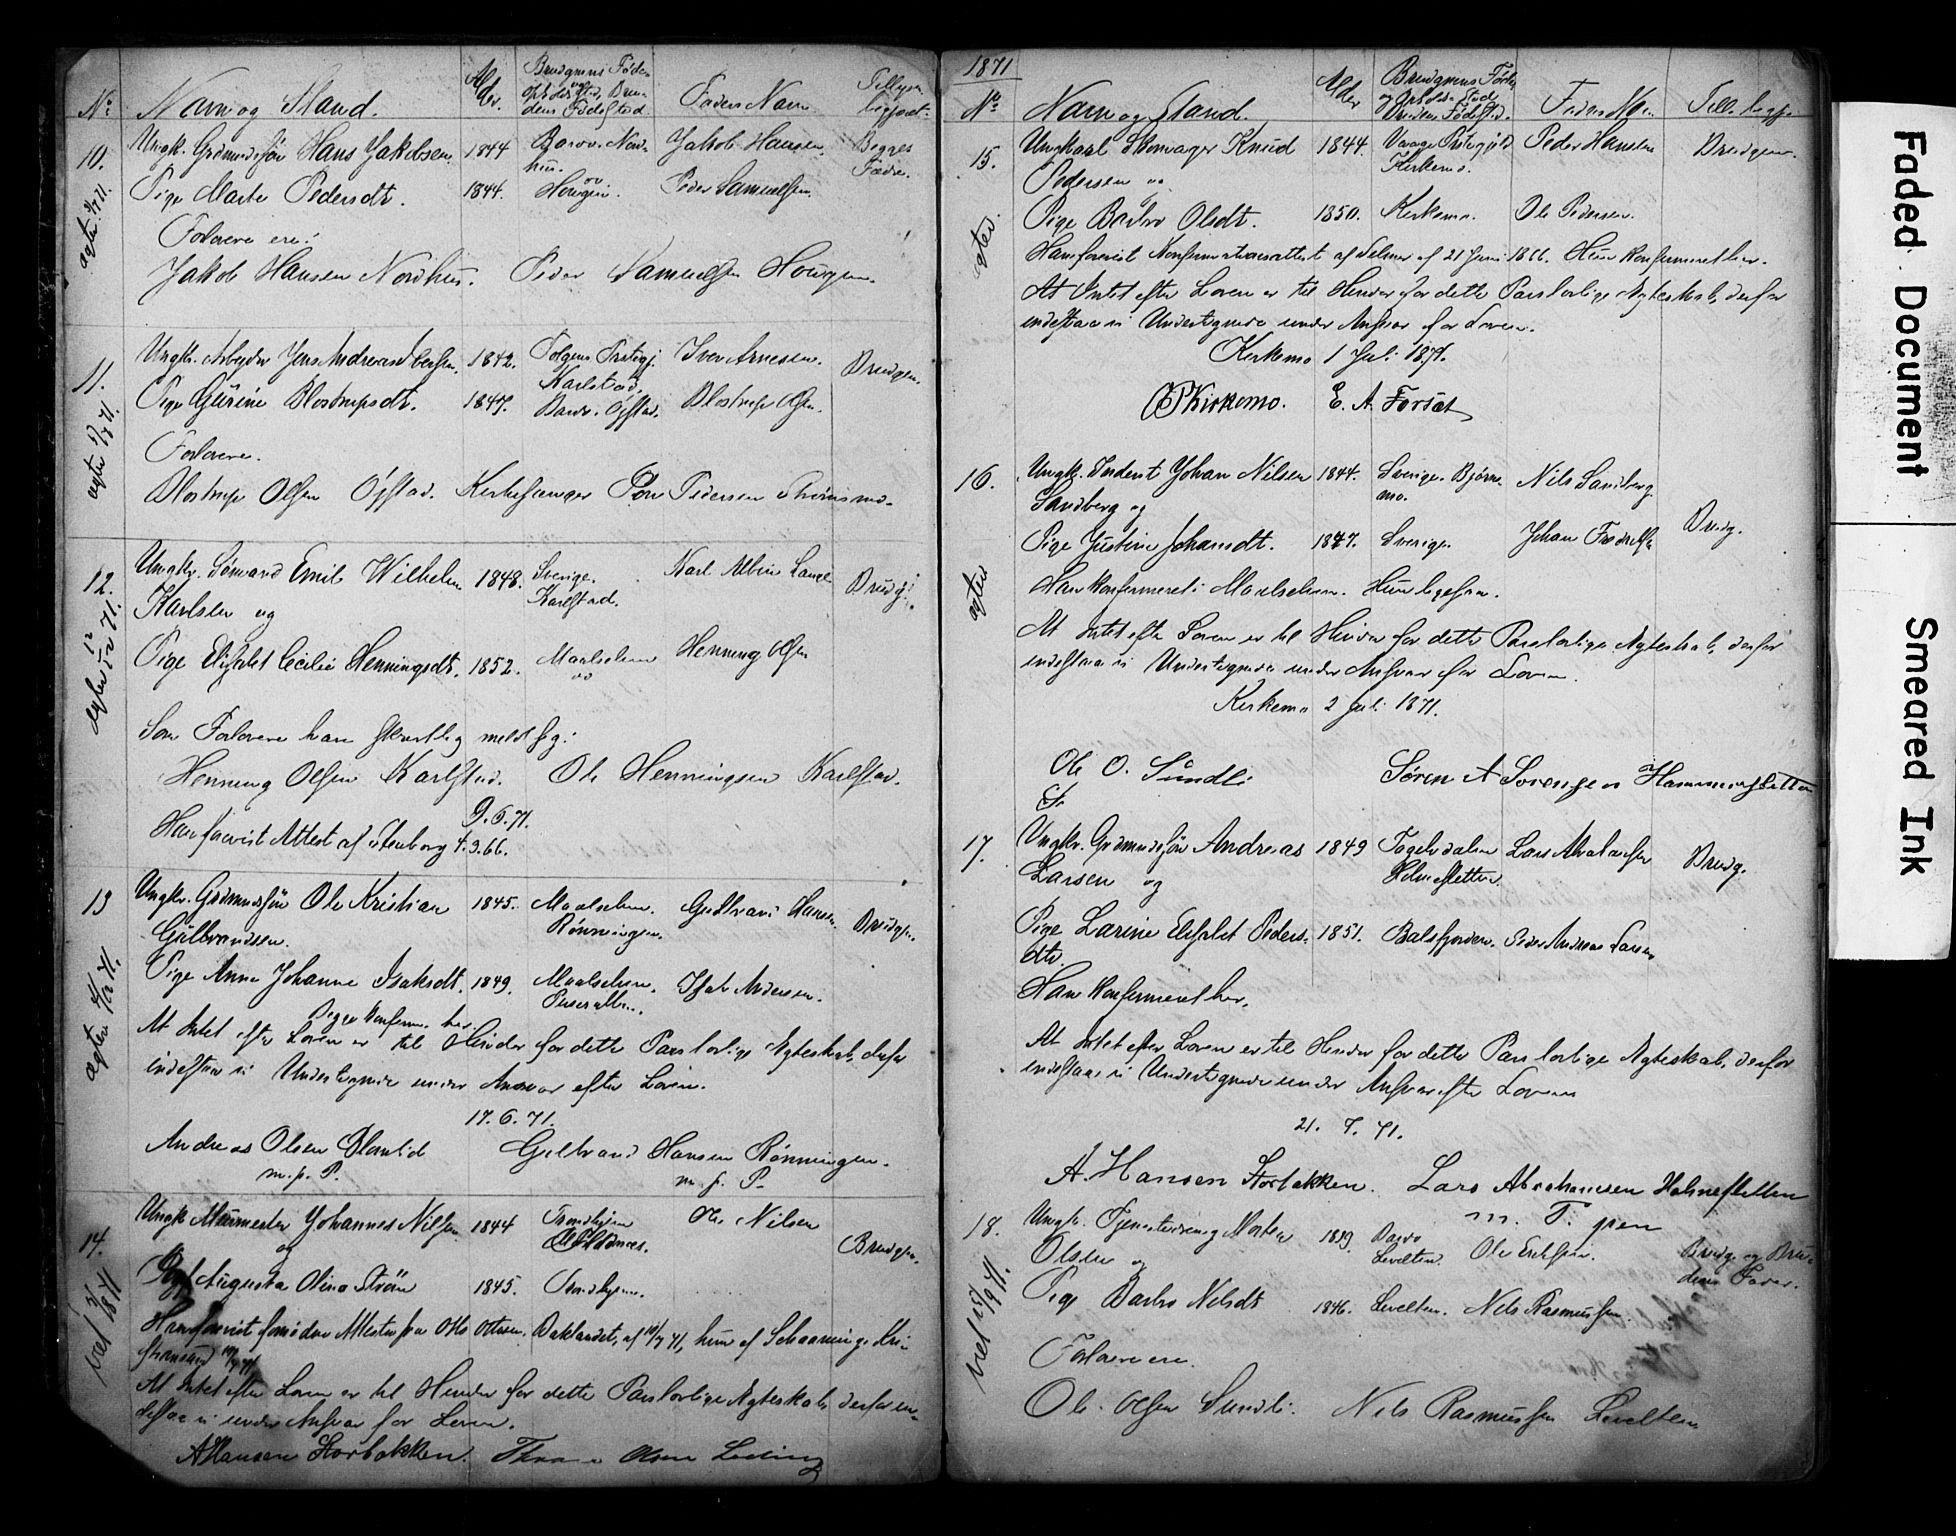 No Navn og Stand. Al der. Brudgmens Føde- og Opholdssted, Bru- dens Fødested. Faders Navn Tillysn. begjært:
10. Ungk. Grdmandssøn Hans Jakobsen. 1844 Bardo. Nord- Jakob Hansen. Begges
hus. Fædre.
Pige Marte Pedersdt. 1844. Hougen. Peder Samuelsen.
Forlovere ere:
Jakob Hansen Nordhus. Peder Samuelsen Hougen.
11. Ungkr. Arbejder Jens Andreas Iversen. 1842. Præstegj. Iver Arnesen. Brudgm.
Karlstad.
Pige Gurine Blostrupsdt. 1847. Bardo. Øfstad. Blostrup Olsen.
Forlovere.
Blostrup Olsen Øfstad. Kirkesanger Peder
12. Ungkr. Sømand Emil Wilhelm 1848. Sverige. Karl Albin Lange Brudg.
Karlsen og Karlstad.
Pige Elisabet Cecilie Henningsdt. 1852. Maalselven Henning Olsen
Som Forlovere have skriftlig meldt sig:
Henning Olsen Karlstad. Ole Henningsen Karlstad.
9.6.71.
Han forevist Attest af 4.9.66.
13 Ungkr. Grdmandssøn Ole Kristian 1845. Maalselven. Gulbrand Hansen Brudgm.
Gulbrandsen. Rønningen.
Pige Anne Johanne Isaksdt. 1849. Maalselven. Isak Andersen.
Begge konferm. her.
At Intet efter Loven er til Hinder for dette Pars lovlige Ægteskab, derfor
indestaar vi Undertegnede under Ansvar efter Loven.
17.6.71.
Andreas Olsen Gulbrand Hansen Rønningen.
m. p. P. m. p. P.
14. Ungk. Murmester Johannes Nilsen 1844 Trondhjem Ole Nilsen Brudgm.
og
Pige Augusta Olina Strøm 1845. Trondhjem.
Han forevist Attest fra Otto Ottesen, Baklandet, af 10/7 71, hun af Schaanning, Kri-
stiansund
At Intet efter Loven er til Hinder for dette Pars lovlige Ægteskab, derfor in-
destaar vi under Ansvar for Loven.
AHansen Storbakken. Olsen
1871
No Navn og Stand. Alder Brudgmens Føde- og Opholds Sted Brudens Fødested. Faders Na. Till. begj.
15. Ungkarl Skomager Knud 1844. Peder Hansen Brudgm.
Pedersen og Kirkemo.
Pige Barbro Olsdt. 1850. Kirkemo. Ole Pedersen.
Han forevist Konfermationsattest af Selmer af 21 Juni 1866. Hun konfermeret her.
At Intet efter Loven er til Hinder for dette Pars lovlige Ægteskab, derfor
indestaar vi Undertegnede under Ansvar for Loven.
Kirkemo 1 Juli 1871.
OPKirkemo. E. A. Forsæt
16. Ungk. Inderst Johan Nilsen 1844. Sverige. Bjørn- Nils Sandberg.
Sandberg og mo. Brudg.
Pige Justine Johansdt. 1847. Sverige. Johan Fredriksen
Han konfermeret i Maalselven. Hun ligesaa.
At Intet efter Loven er til Hinder for dette Pars lovlige Ægteskab, derfor
indestaar vi Undertegnede under Ansvar for Loven.
Kirkemo 2 Juli 1871.
Ole O. Sundli Søren A Sørensen Hammersletten
17. Ungkr. Grdmandssøn Andreas 1849 Lars Abrahamsen Brudg.
Larsen og Holmesletten.
Pige Larine Elisabet Peders- 1851. Balsfjorden. Peder Andreas Larsen
dtr.
Han konfermeret her.
At Intet efter Loven er til Hinder for dette Pars lovlige Ægteskab, derfor
indestaar vi Undertegnede under Ansvar efter Loven
21. 7. 71.
A. Hansen Storbakken. Lars Abrahamsen Holmesletten
m. F. pen
18. Ungk. Tjenestedreng Morten 1849. Bardo Ole Erikssen. Brudg. og Bru-
Olsen og Levelten. dens Fader.
Pige Barbro Nilsdt 1846. Levelten. Nils Rasmussen
Forlovere ere.
Ole Olsen Sundli. Nils Rasmussen Levelten
Faded Document
Smeared Ink